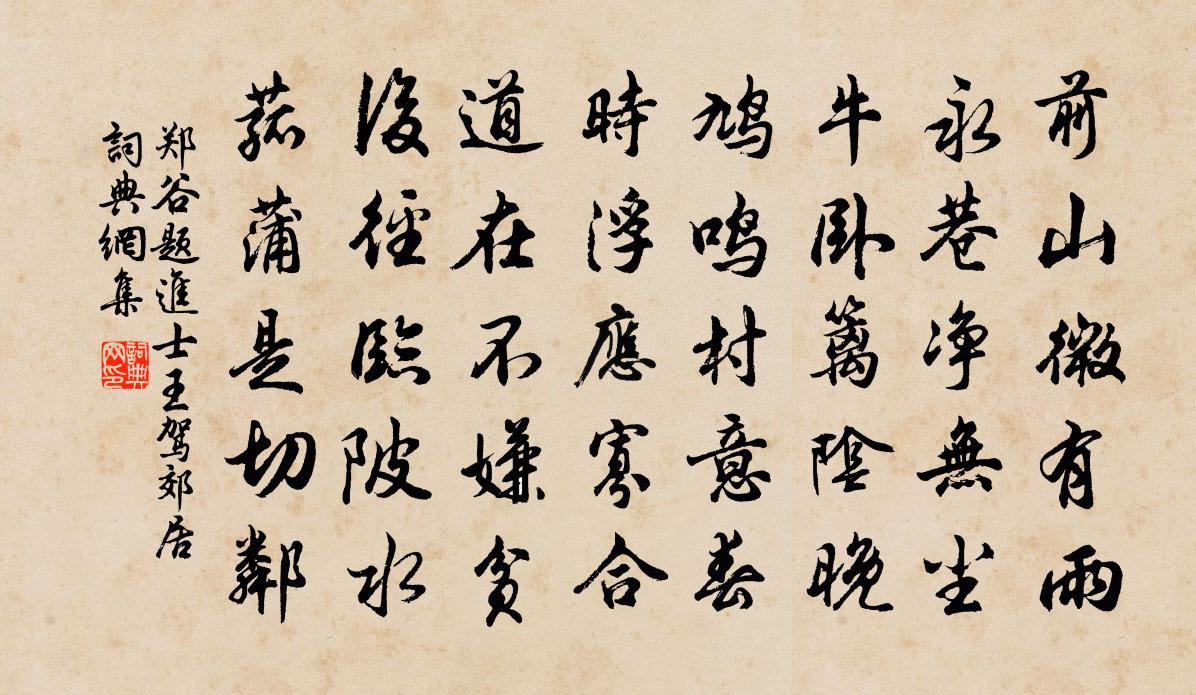 前山微有雨
永巷净無尘
牛卧篱陰晚
鸠鸣村意春
時浮應寡合
道在不嫌貧
後徑臨陂水
菰蒲是切鄰
郑谷题進士王驾郊居
詞典網集
詞典网印